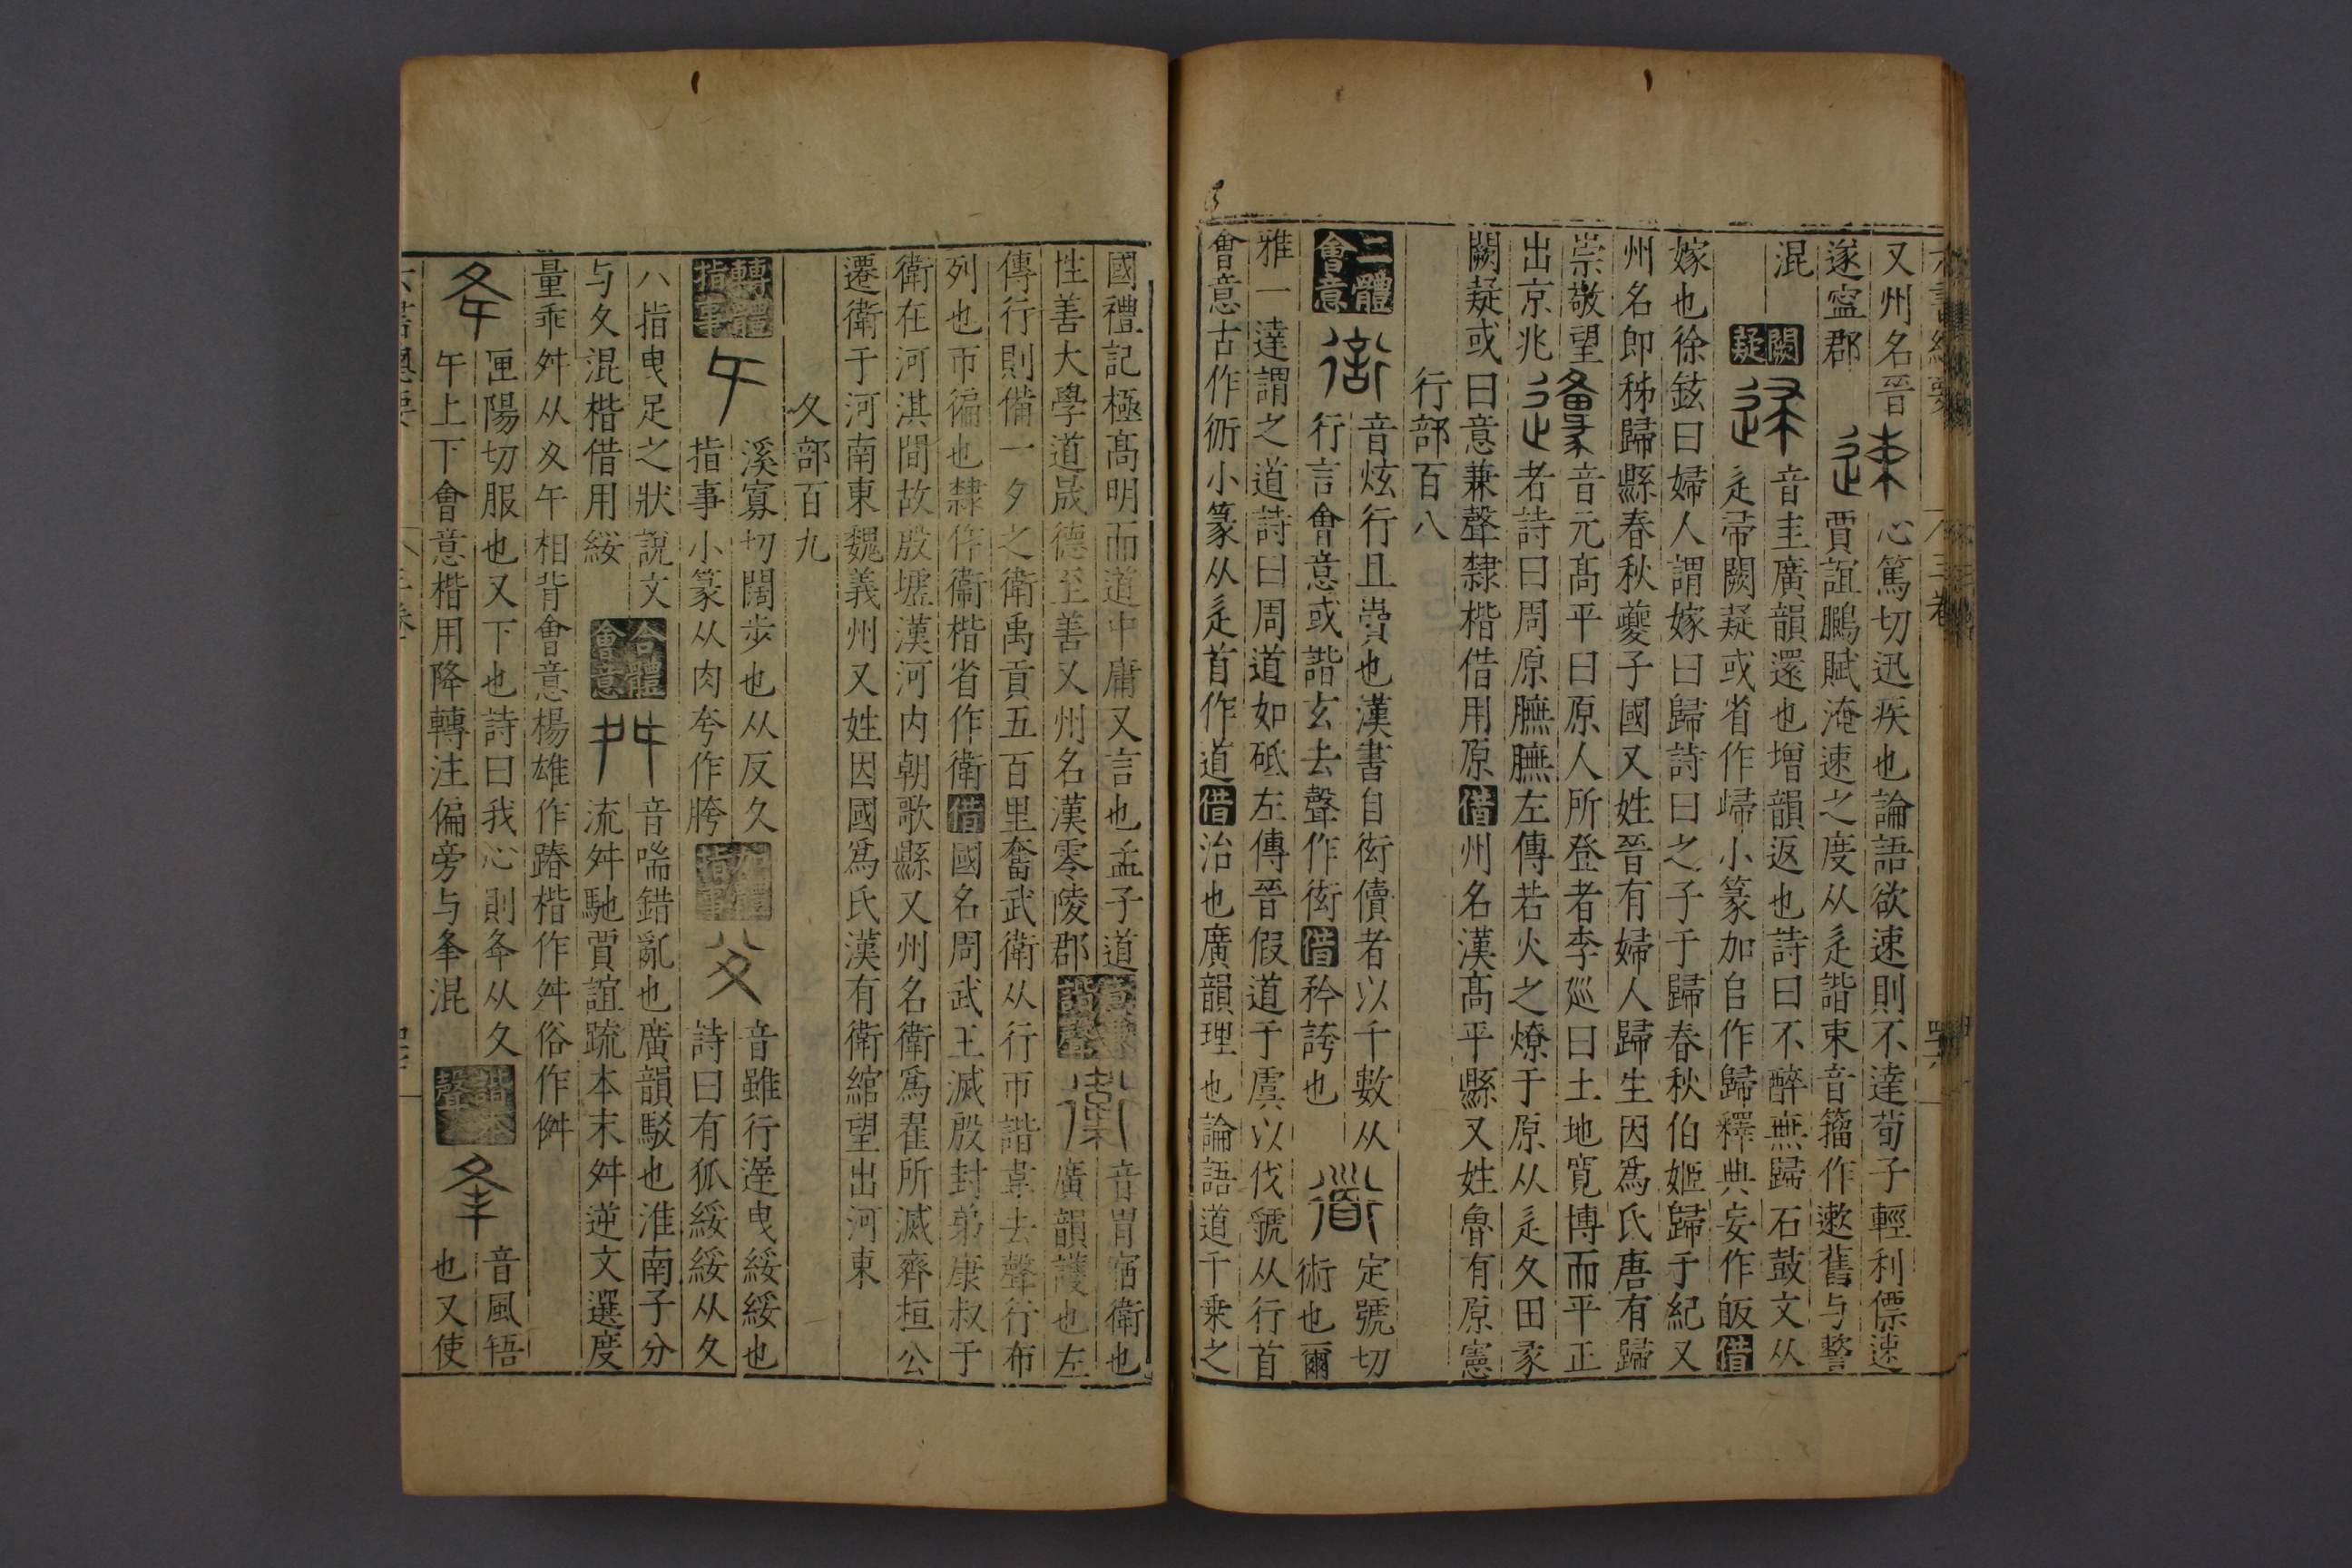 又州名晉速心篤切迅疾也論語欲速則不達荀子輕利僄速
遂寍郡賈誼鵩賦淹速之度从辵諧束音籀作遬舊与警
混闕疑音圭廣韻還也增韻返也詩曰不醉無歸石鼓文从
辵帚闕疑或省作㱕小篆加𠂤作歸釋典妄作皈借
嫁也徐鉉曰婦人謂嫁曰歸詩曰之子于歸春秋伯姬歸于紀又
州名即秭歸縣春秋夔子國又姓晉有婦人歸生因爲氏唐有歸
崇敬望音元高平曰原人所登者李廵曰土地寬博而平正
出京兆者詩曰周原膴膴左傳若火之燎于原从辵夂田豖
闕疑或曰意兼聲隸楷借用原借州名漢高平縣又姓魯有原憲
行部百八
二體會意音炫行且賣也漢書自衒價者以千數从定號切
行言會意或諧玄去聲作衒借矜誇也術也爾
雅一達謂之道詩曰周道如砥左傳晉假道于虞以伐虢从行首
會意古作𧗟小篆从辵首作道借治也廣韻理也論語道千乗之
國禮記極高明而道中庸又言也孟子道音胃宿衛也
性善大學道晟德至善又州名漢零陵郡廣韻護也左
傳行則備一夕之衛禹貢五百里奮武衛从行帀諧枼去聲行布
列也帀徧也隸作衞楷省作衛借國名周武王滅殷封弟康叔于
衛在河淇間故殷墟漢河内朝歌縣又州名衛爲翟所滅齊桓公
遷衛于河南東魏義州又姓因國爲氏漢有衛綰望出河東
夂部百九
轉體指事溪寡切闊步也从反夂音雖行遟曳綏綏也
指事小篆从肉夸作胯詩曰有狐綏綏从夂
八指曳足之狀說文合體會意音喘錯亂也廣韻駁也淮南子分
与夂混楷借用綏流舛馳賈誼疏本末舛逆文選度
量乖舛从夂午相背會意楊雄作踳楷作舛俗作僢
夅匣陽切服也又下也詩曰我心則夅从夂音風啎
午上下會意楷用降轉注偏旁与夆混諧聲夆也又使